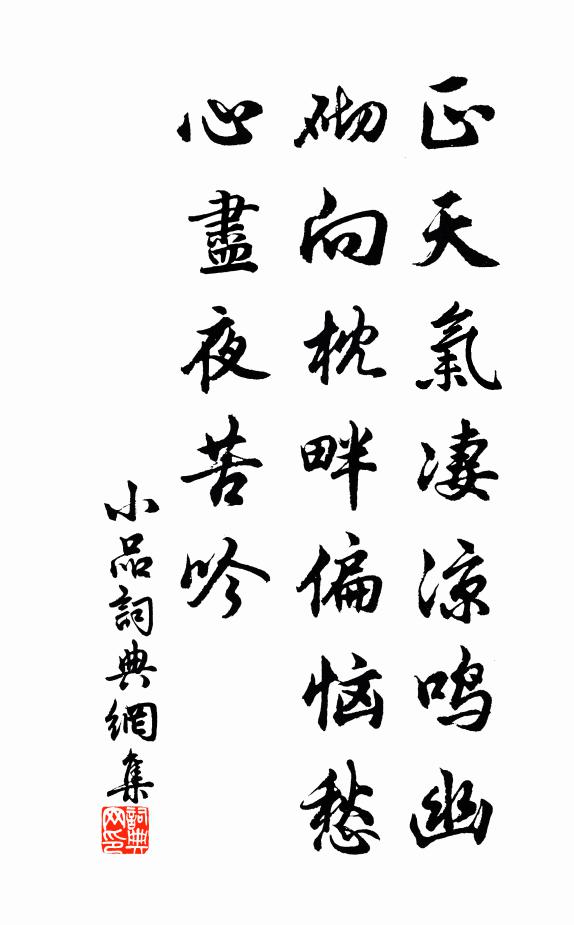 正天氣凄涼鳴幽
砌向枕畔偏恼愁
心盡夜苦吟
小品詞典網集
詞典网印